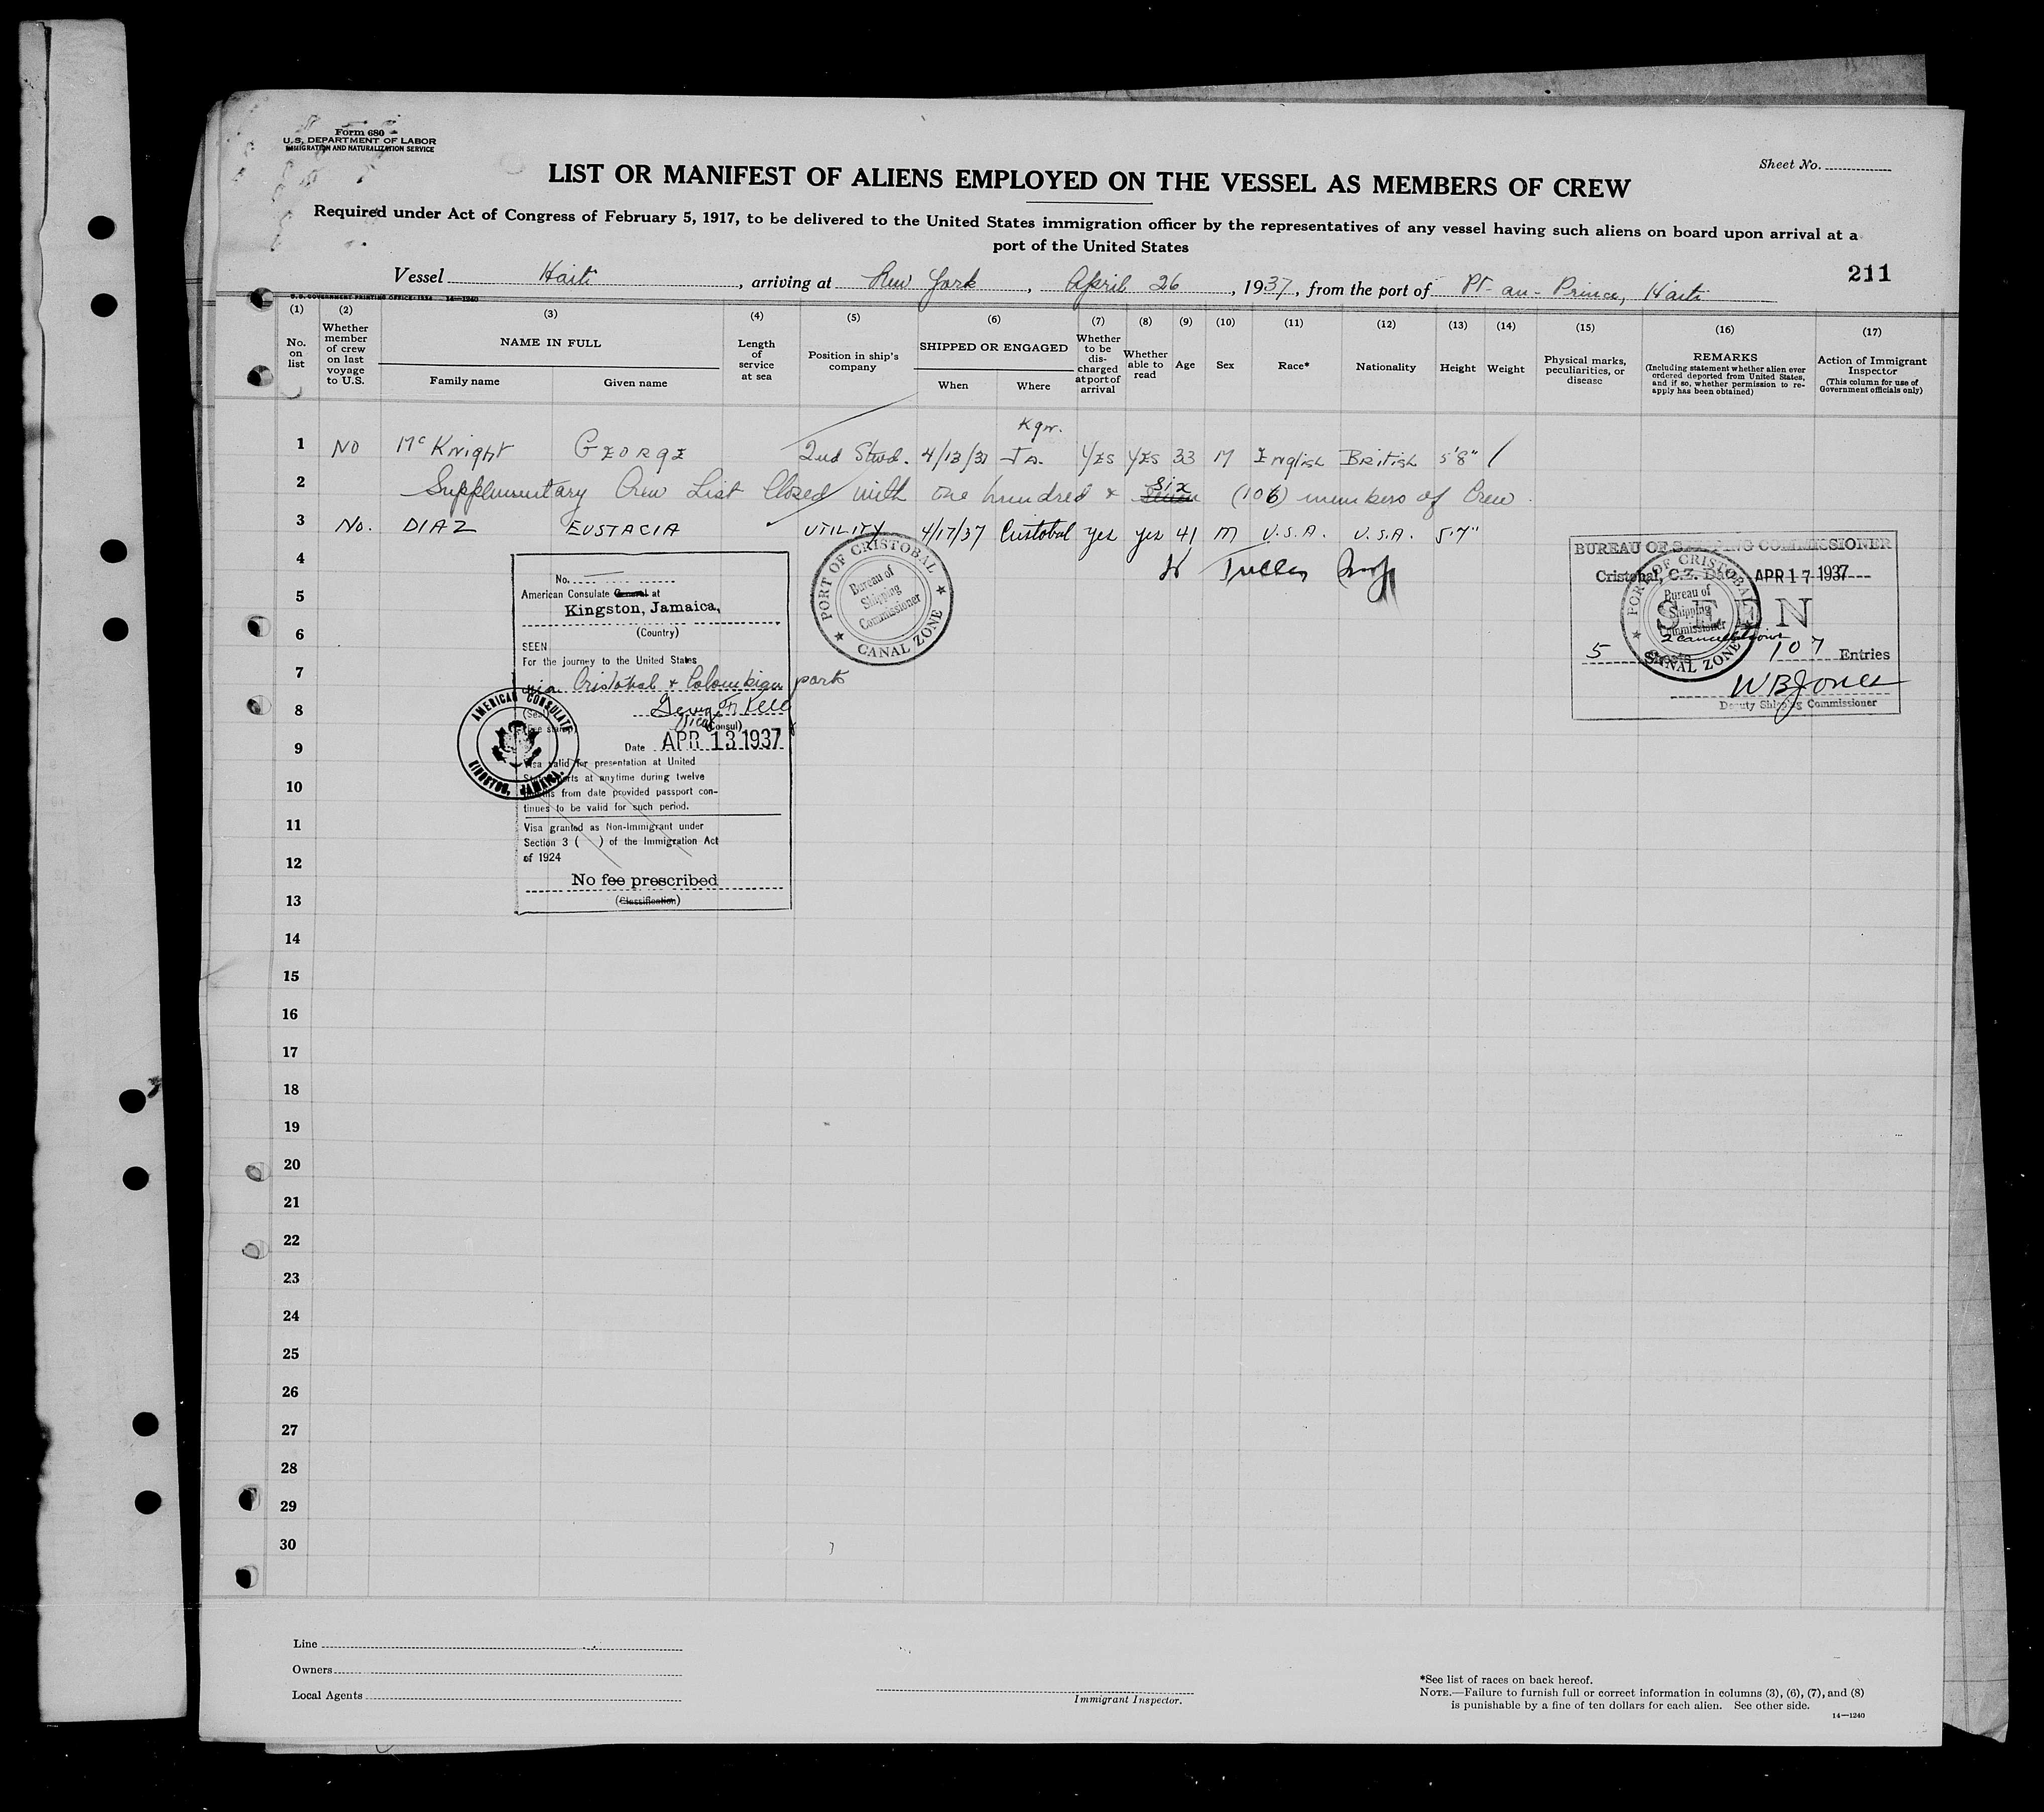 Form 680
U.S. DEPARTMENT OF LABOR
IMMIGRATION AND NATURALIZATION SERVICE
Sheet No.
LIST OR MANIFEST OF ALIENS EMPLOYED ON THE VESSEL AS MEMBERS OF CREW
Required under Act of Congress of February 5, 1917, to be delivered to the United States immigration officer by the representatives of any vessel having such aliens on board upon arrival at a
port of the United States
211
Vessel Haiti, arriving at New York, April 26, 1937, from the port of Pt-au-Prince, Haiti
U.S. GOVERNMENT PRINTING OFFICE: 1934 14—1240
(1) No. on list
(2) Whether member of crew on last voyage to U.S.
(3) NAME IN FULL Family name Given name
(4) Length of service at sea
(5) Position in ship's company
(6) SHIPPED OR ENGAGED When Where
(7) Whether to be discharged at port of arrival
(8) Whether able to read
(9) Age
(10) Sex
(11) Race*
(12) Nationality
(13) Height
(14) Weight
(15) Physical marks, peculiarities, or disease
(16) REMARKS (Including statement whether alien ever ordered deported from United States, and if so, whether permission to re-apply has been obtained)
(17) Action of Immigrant Inspector (This column for use of Government officials only)
Kgn.
1 NO McKnight GEORGE 2nd Stwd. 4/13/37 Ja. YES YES 33 M English British 5'8"
2 Supplementary Crew List Closed with one hundred & seven six (106) members of Crew.
3 No. DIAZ EUSTACIA UTILITY 4/17/37 Cristobal yes yes 41 M U.S.A. U.S.A. 5'7"
4
5
6
7
8
9
10
11
12
13
14
15
16
17
18
19
20
21
22
23
24
25
26
27
28
29
30
No.
American Consulate General at
Kingston, Jamaica,
(Country)
SEEN
For the journey to the United States
via Cristobal & Colombian ports
(Seal)
Vice Consul)
Date APR 13 1937
Visa valid for presentation at United
States ports at anytime during twelve
months from date provided passport con-
tinues to be valid for such period.
Visa granted as Non-Immigrant under
Section 3 ( ) of the Immigration Act
of 1924
No fee prescribed
(Classification)
AMERICAN CONSULATE
KINGSTON, JAMAICA.
PORT OF CRISTOBAL
Bureau of
Shipping
Commissioner
CANAL ZONE
BUREAU OF SHIPPING COMMISSIONER
Cristobal, C.Z. Date APR 17 1937
SEEN
PORT OF CRISTOBAL
Bureau of
Shipping
Commissioner
CANAL ZONE
2 cancellations
5 Sheets 107 Entries
W B Jones
Deputy Shipping Commissioner
Line
Owners
Local Agents
Immigrant Inspector.
*See list of races on back hereof.
NOTE.—Failure to furnish full or correct information in columns (3), (6), (7), and (8)
is punishable by a fine of ten dollars for each alien. See other side.
14—1240